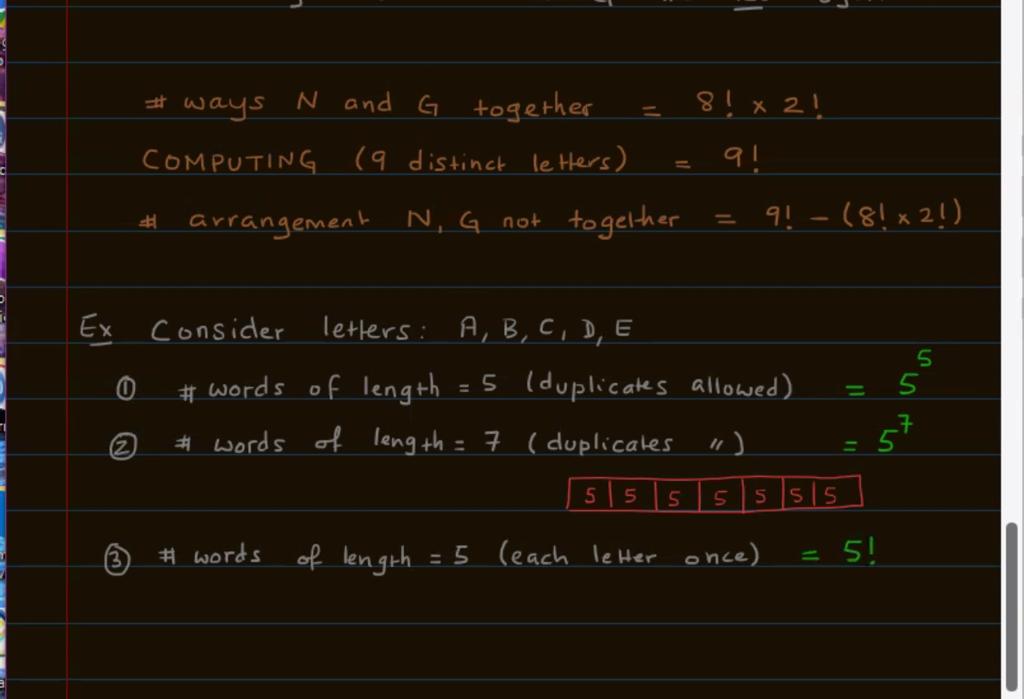 # ways N and G together = 8! x 2!
COMPUTING (9 distinct letters) = 9!
# arrangement N, G not together = 9! - (8! x 2!)
Ex Consider letters: A, B, C, D, E
① # words of length = 5 (duplicates allowed) = 5⁵
② # words of length = 7 (duplicates 〃) = 5⁷
5 5 5 5 5 5 5
③ # words of length = 5 (each letter once) = 5!